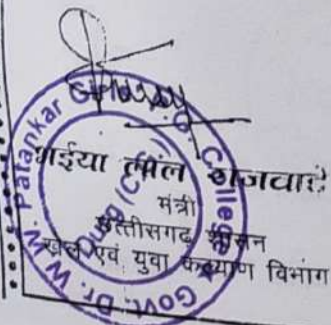 भईया लाल राजवाड़े
मंत्री
छत्तीसगढ़ शासन
खेल एवं युवा कल्याण विभाग
Govt. Dr. W.W. Patankar G. College Durg (C.G.)